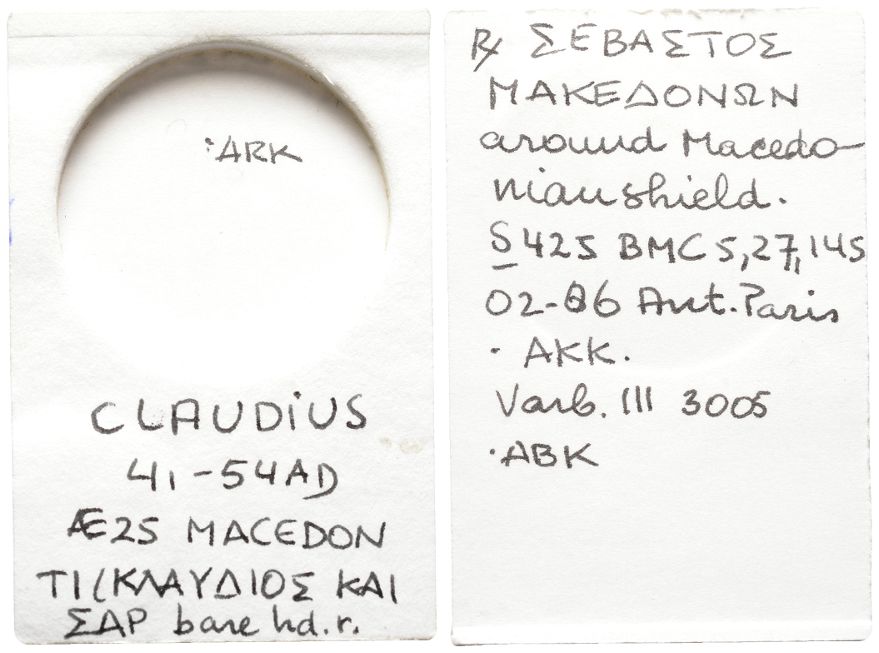 ·ARK
CLAUDiUS
41-54AD
Æ25 MACEDON
ΤΙ(ΚΛΑΥΔΙΟΣ ΚΑΙ
ΣΑΡ bare hd.r.
℞ ΣΕΒΑΣΤΟΣ
ΜΑΚΕΔΟΝΩΝ
around Macedo-
nian shield.
S 425 BMC 5,27,145
02-86 Ant.Paris
· AKK.
Varb. III 3005
·ABK